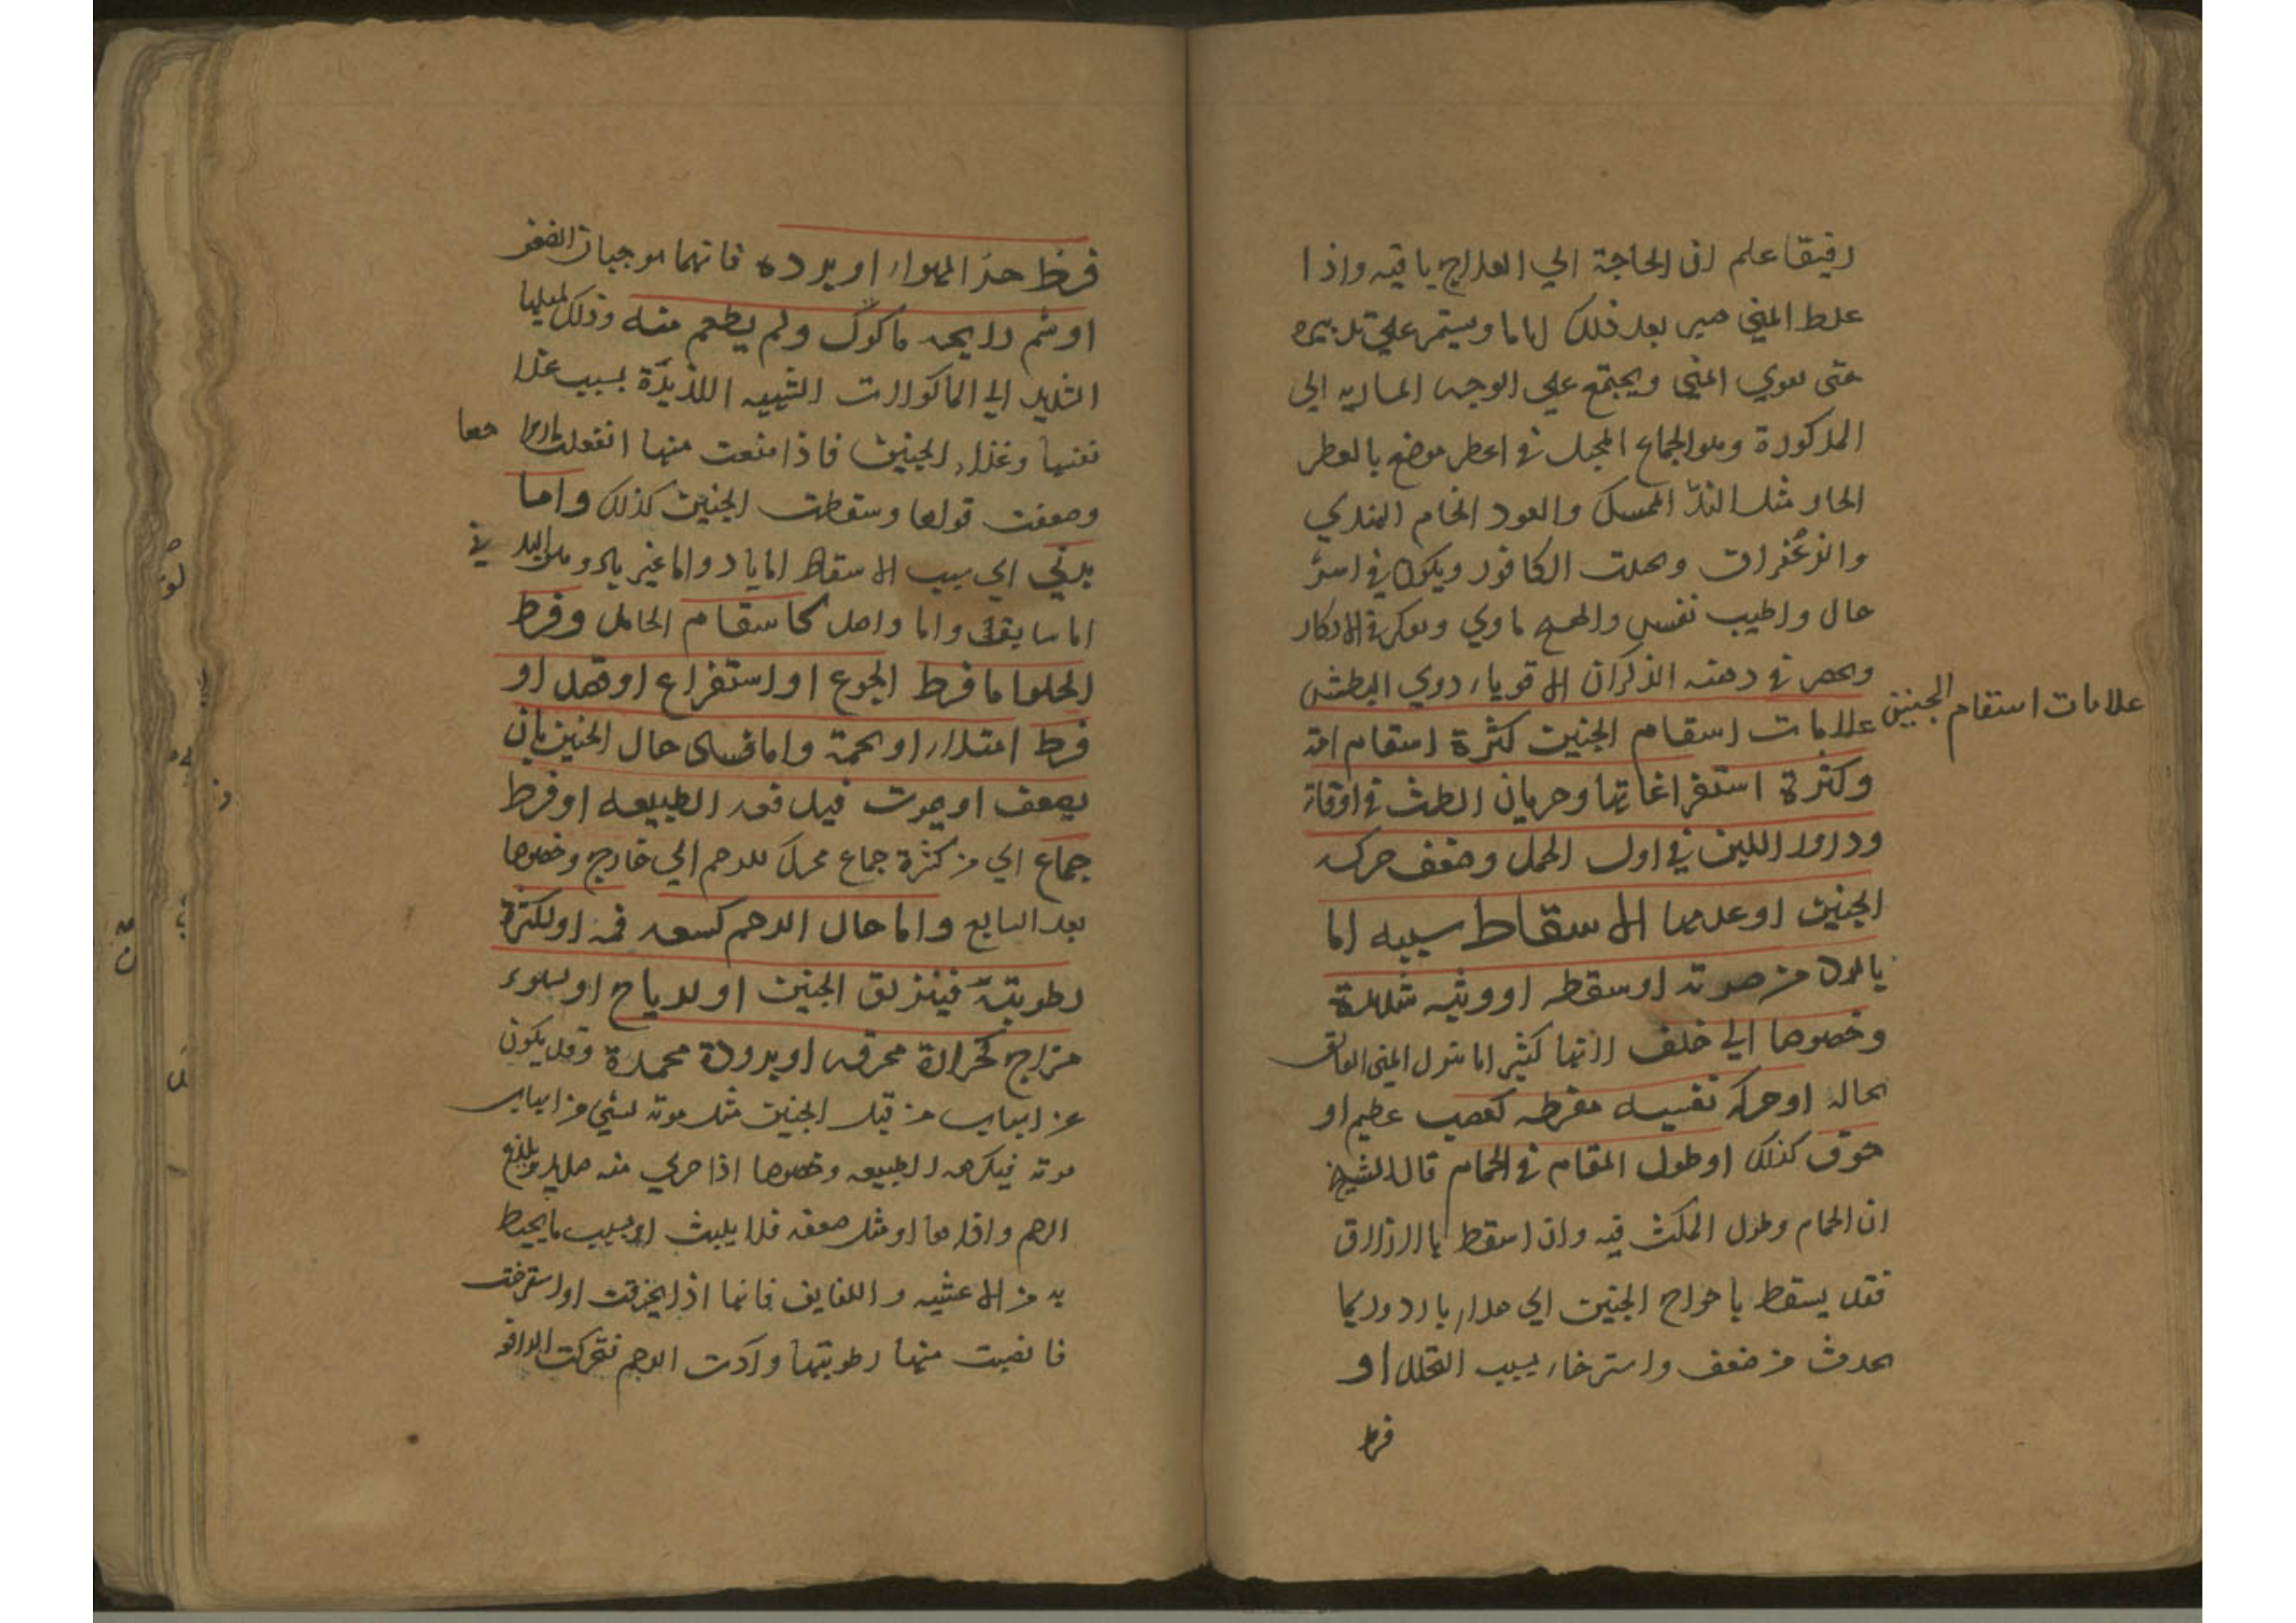 رقيقا علم ان الحاجة الي العلاج باقيه واذا
غلط المني صبر بعد ذلك اياما ويستمر علي تدبيره
حتى يقوي المني ويجتمع علي الوجه الماريه الي
المذكورة وهو الجماع المجبل في اعطر موضع بالعطر
الحار مثل الند الممسك والعود الخام الهندي
والزعفران وبحلت الكافور ويكون في اسر
حال واطيب نفس وابهج ماوي ويفكر في الاذكار
ويحضر في ذهنه الذكران الاقوياء ذوي البطش
علامات اسقام الجنين
علامات اسقام الجنين كثرة اسقام امه
وكثرة استفراغاتها وجريان الطمث في اوقاته
ودرور اللبن في اول الحمل وضعف حركه
الجنين او عدمها الاسقاط سببه اما
بادي من ضربة او سقطه او وثبه شديدة
وخصوصا الي خلف لانها كثيرا ما تنزل المني العالق
بحاله او حركه نفسيه مفرطه كغضب عظيم او
خوف كذلك او طول المقام في الحمام قال الشيخ
ان الحمام وطول المكث فيه وان اسقط بالازلاق
فقد يسقط باحواج الجنين الي هواء بارد وربما
يحدث من ضعف واسترخاء بسبب التحلل او
فرط
فرط حر الهواء او برده فانهما موجبان الضعف
او شم رايحه ماكول ولم يطعم منه وذلك لميلها
الشديد الي الماكولات الشهيه اللذيذة بسبب غذاء
نفسها وغذاء الجنين فاذا منعت منها انفعلت
وضعفت قواها وسقطت الجنين كذلك واما
بدني اي سبب الاسقاط اما باد واما غير باد وهو البد في
اما سابق واما واصل كاسقام الحامل وفرط
الخلو اما فرط الجوع او استفراغ او فصد او
فرط امتلاء او تخمة واما فساد حال الجنين بان
يضعف او يموت فيدفعه الطبيعه او فرط
جماع اي من كثرة جماع محرك للرحم الي خارج وخصوصا
بعد السابع واما حال الرحم كسعه فمه او لكثرة
رطوبته فينزلق الجنين او لرياح او لسوء
مزاج كحرارة محرقه او برودة مجمدة وقد يكون
عن اسباب من قبل الجنين مثل موته لشي من اسباب
موته فيكرهه الطبيعه وخصوصا اذا جري منه صديد يلذع
الرحم واذاها او مثل ضعفه فلا يلبث او بسبب ما يحيط
به من الاغشيه واللفايف فانها اذا انخرقت او استرخت
فانصبت منها رطوبتها وآذت الرحم فتحركت الدافعه